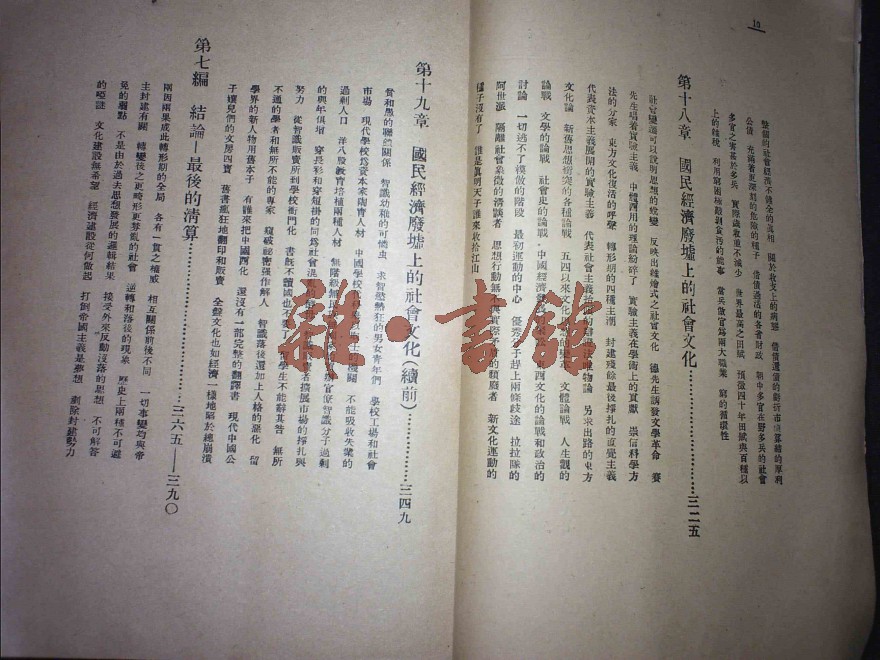 10
整個的社會經濟不健全的眞相 關於收支上的病態 借債還債的翻沂市場算結的厚利
公債 充滿着更深刻的危險的種子 借債過活的各省財政 韓中多官在野多兵的社會
多官之害甚於多兵 實際歲收重不減少 世界最高之田賦 預徵四十年田賦與百種以
上的雜稅 利用窮困極殺到貪污的能事 當兵做官為兩大職業 窮的循環性
第十八章 國民經濟廢墟上的社會文化…………三二五
社會變遷可以說明思想的蛻變 反映出縫繪式之社會文化 德先生誘發文學革命 賽
先生唱着實驗主義 中體西用的理論紛碎了 實驗主義在學術上的貢獻 崇信科學方
法的分家 東方文化復活的呼聲 轉形期的四種主潮 封建殘餘最後掙扎的直覺主義
代表資本主義展開的實驗主義 代表社會主義 唯物論 另求出路的東方
文化論 新舊思想衝突的各種論戰 五四以來文化 文體論戰 人生觀的
論戰 文學的論戰 社會史的論戰·中國經濟 東西文化的論戰和政治的
討論 一切逃不了模倣的階段 最初運動的中心 優秀分子趕上兩條歧途 拉拉隊的
阿世派 隔離社會象徵的清談者 思想行動無 實際矛盾的頹廢者 新文化運動的
種子沒有了 誰是眞明天子誰來收拾江山
第十九章 國民經濟廢墟上的社會文化(續前)…………三四九
貧和愚的聯鎖關係 智識幼稚的可憐虫 求智慾熱狂的男女青年們 學校工場和社會
市場 現代學校爲資本家陶育人材 中國學校 機關 不能吸收失業的
過剩人口 洋八股教育培植兩種人材 無階級無民 辦官僚智識分子過剩
的與年俱增 穿長衫和穿短掛的同爲社會混亂的 者擴展市場的掙扎與
努力 從智識販賣所到學校衙門化 書旣不讀國也不要了 留學生不能辭其咎 無所
不通的學者和無所不能的專家 窺破祕密强作解人 智識落後還加上人格的惡化 留
學界的新人物用舊本子 有誰來把中國西化 還沒有一部完整的翻譯書 現代中國公
子孃兒們的文房四寶 舊書瘋狂地翻印和販賣 全盤文化也如經濟一樣地屬於總崩潰
第七編 結論—最後的清算…………三六五——三九〇
兩因兩果成此轉形期的全局 各有一貫之權威 相互關係前後不同 一切事變均與帝
主封建有關 轉變後之更畸形更禁亂的社會 逆轉和落後的現象 歷史上兩種不可避
免的弱點 不是由於過去思想發展的邏輯結果 接受外來反動沒落的思想 不可解答
的啞謎 文化建設無希望 經濟建設從何做起 打倒帝國主義是夢想 剷除封建勢力
雜·書館